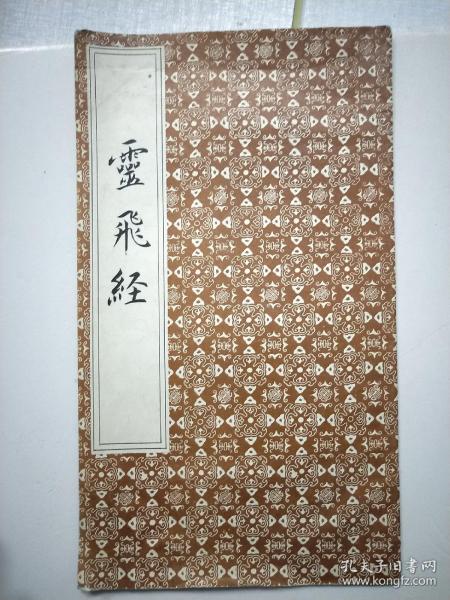 靈飛経
孔夫子旧书网
www.kongfz.com